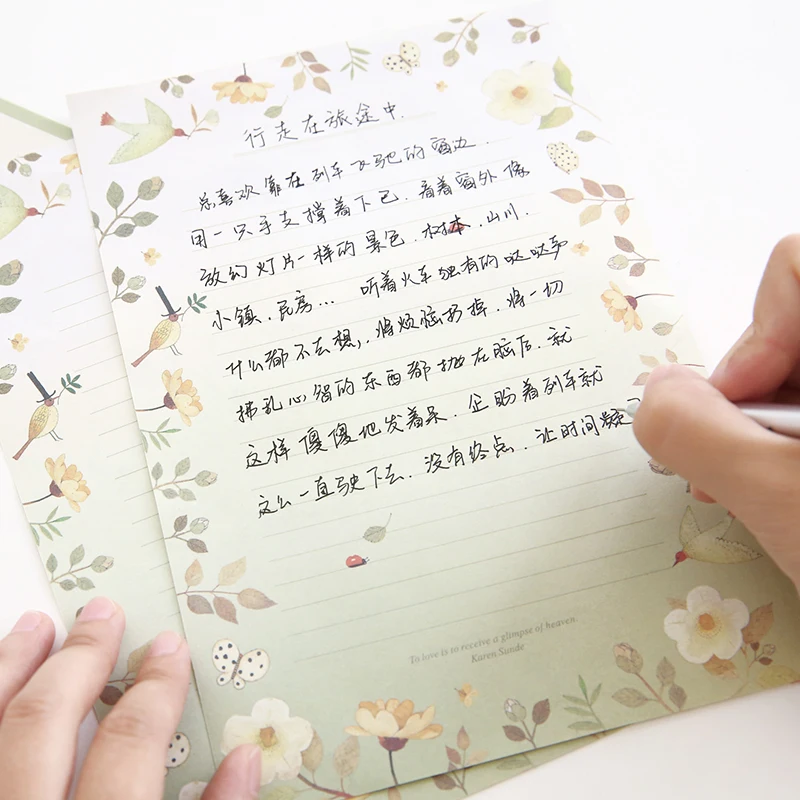 行走在旅途中.
总喜欢靠在列车飞驰的窗边.
用一只手支撑着下巴.看着窗外像
放幻灯片一样的景色.树木.山川.
小镇.民房... 听着火车独有的哒哒声
什么都不去想,.将烦恼扔掉.将一切
扰乱心智的东西都抛在脑后.就
这样傻傻地发着呆.企盼着列车就
这么一直驶下去.没有终点.让时间凝
To love is to receive a glimpse of heaven.
Karen Sunde